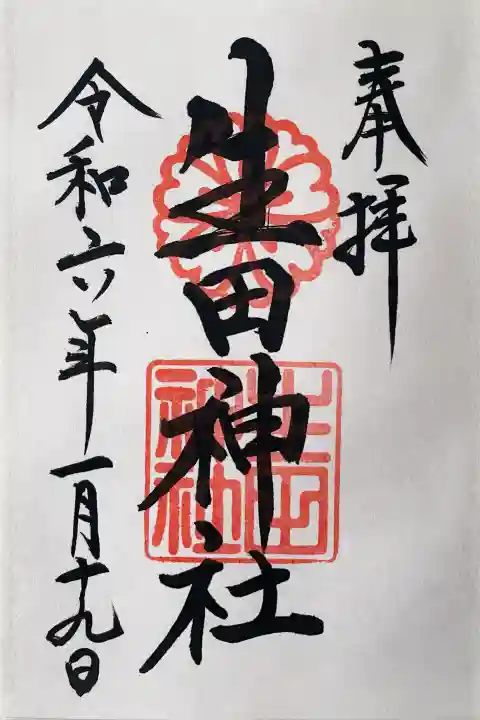 奉拝
生田神社
生田神社
令和六年一月十九日